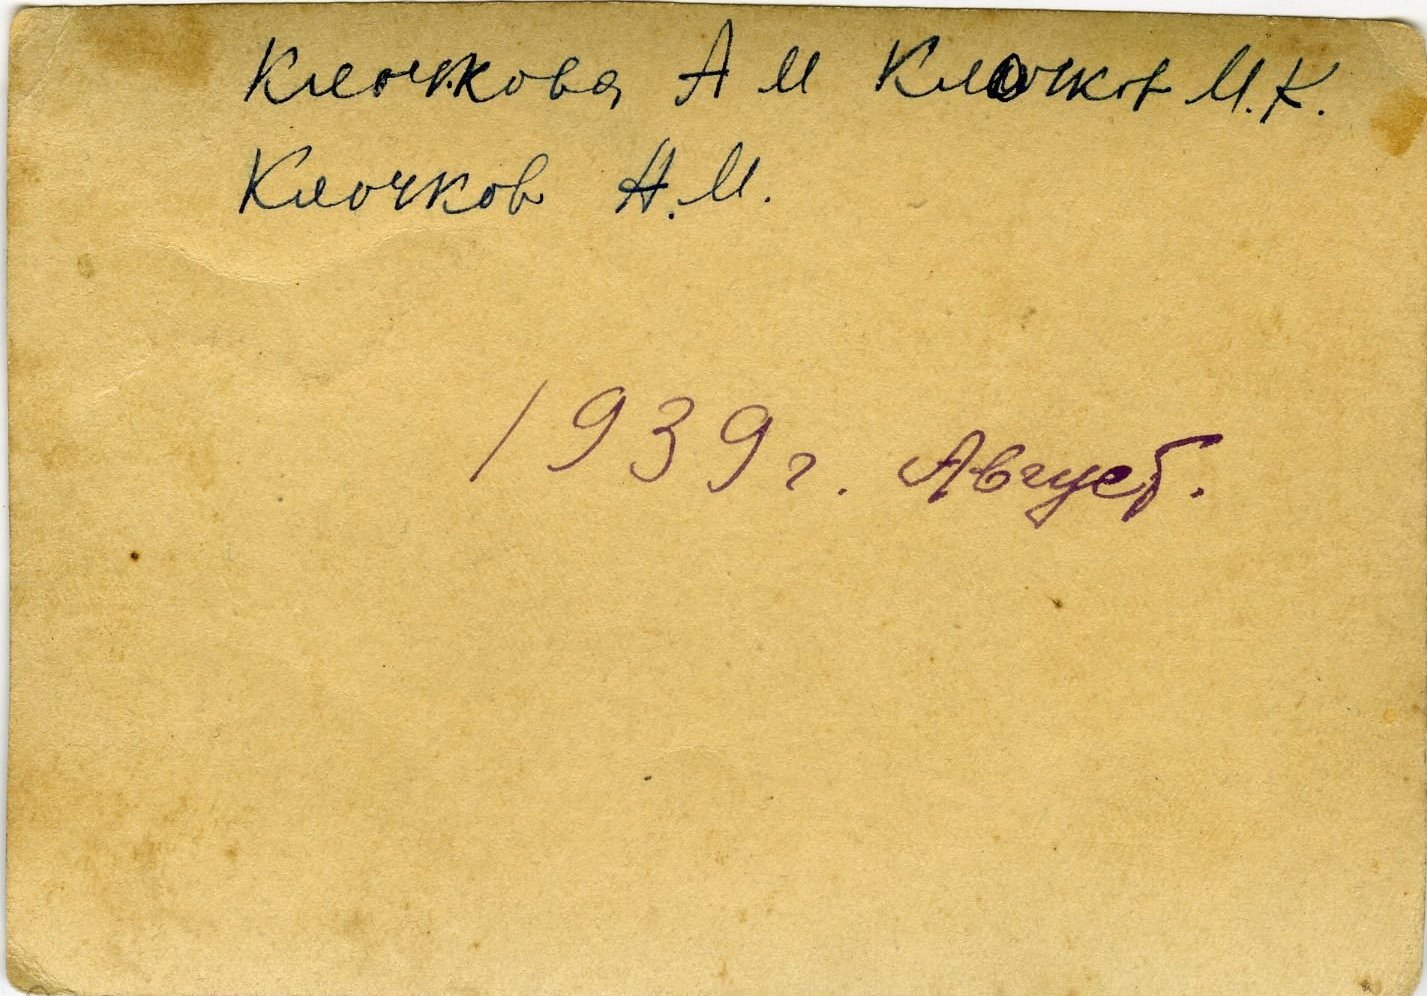 Клочкова А М Клочков М.К.
Клочков Н.М.
1939 г. Август.